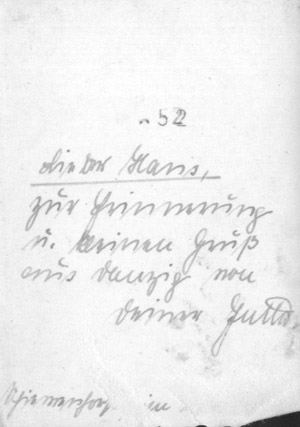 52
Lieber Hans,
zur Erinnerung
u. keinen Gruß
aus Danzig von
deiner Jutta
in